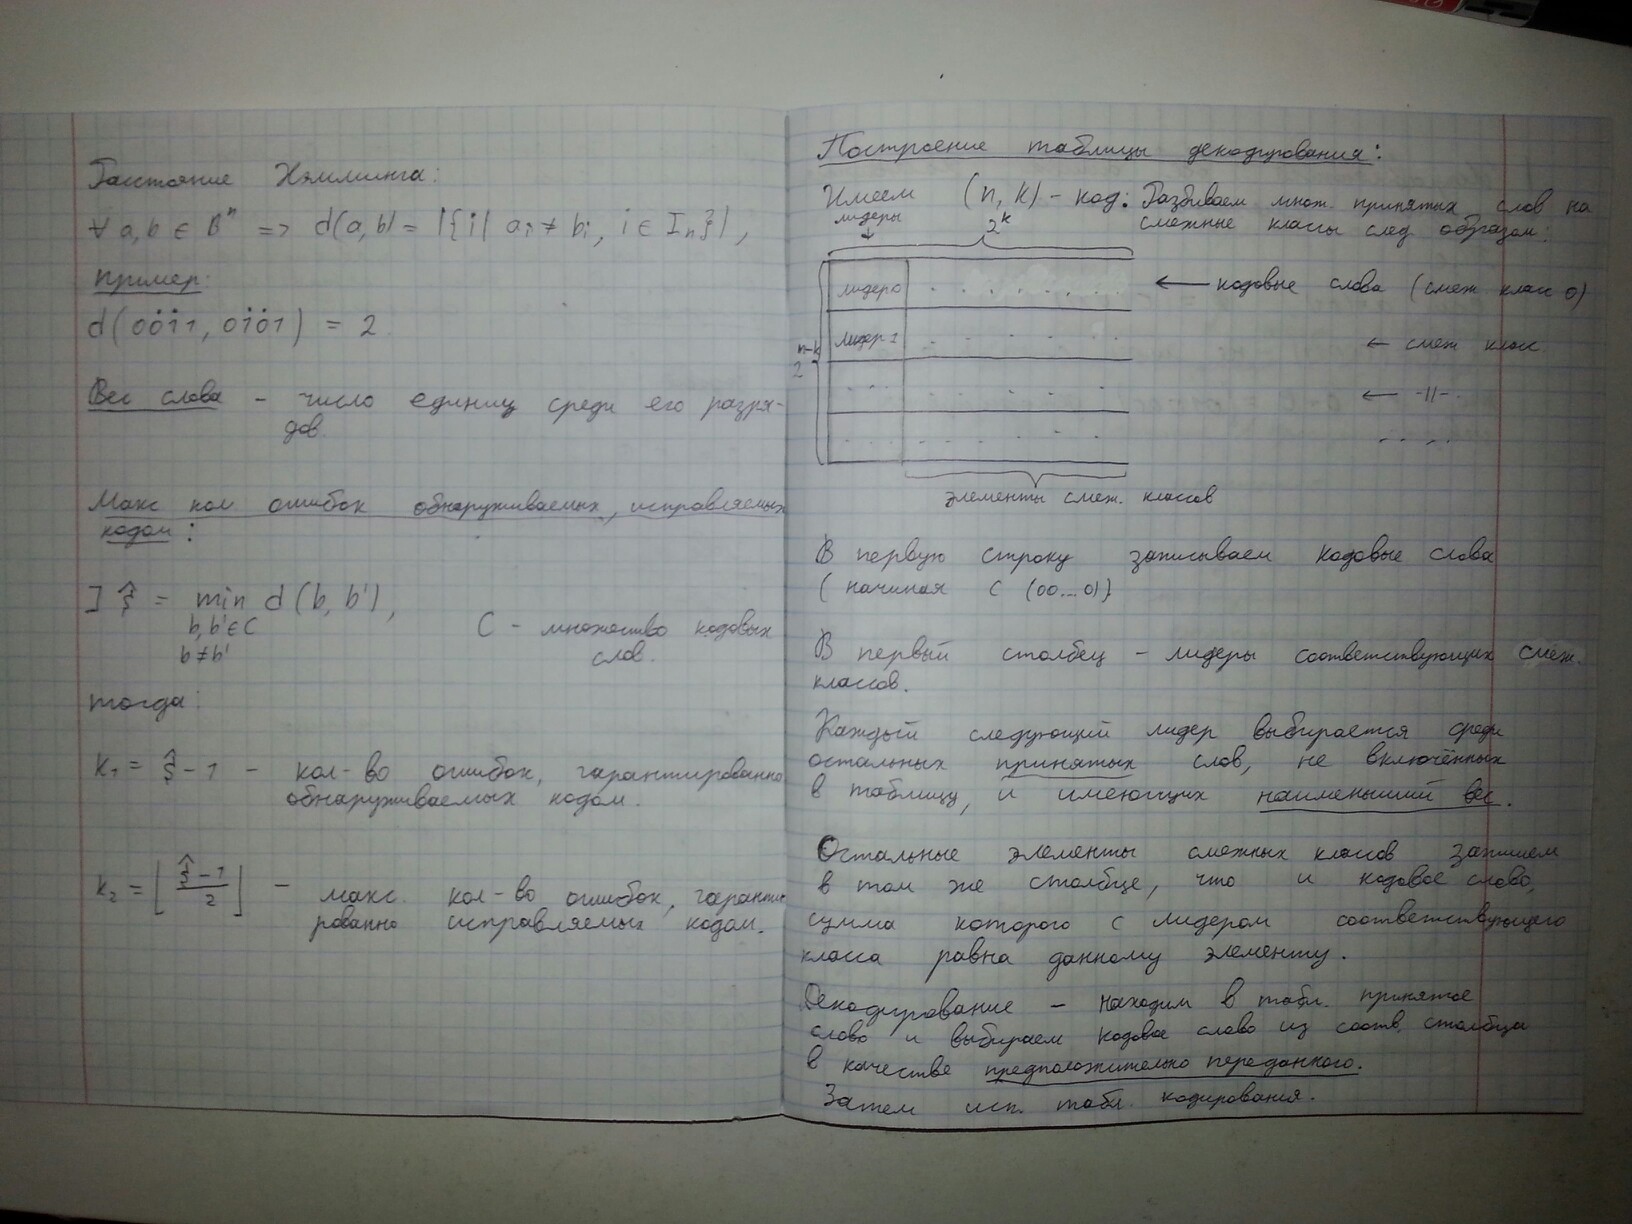 Расстояние Хэмминга:
∀ a,b ∈ Bⁿ => d(a,b) = |{i| aᵢ ≠ bᵢ, i ∈ Iₙ}|,
пример:
d(0011, 0101) = 2
Вес слова - число единиц среди его разря-
дов.
Макс кол ошибок обнаруживаемых, исправляемых
кодом:
] ξ̂ = min d(b, b'),
b,b'∈C
b≠b'
C - множество кодовых
слов.
тогда:
k₁ = ξ̂ - 1 - кол-во ошибок, гарантированно
обнаруживаемых кодом.
k₂ = ⌊(ξ̂ - 1)/2⌋ - макс. кол-во ошибок, гаранти
рованно исправляемых кодом.
Построение таблицы декодирования:
Имеем (n, k) - код: Разбиваем множ. принятых слов на
смежные классы след. образом:
лидеры
2ᵏ
лидер 0 . . . . . . . ← кодовые слова (смеж класс 0)
2ⁿ⁻ᵏ
лидер 1 . . . . . ← смеж класс
. . . . . ← -||-
. . . . . . . . . . . . .
элементы смеж. классов
В первую строку записываем кодовые слова
(начиная с (00...0))
В первый столбец - лидеры соответствующих смеж.
классов.
Каждый следующий лидер выбирается среди
остальных принятых слов, не включённых
в таблицу, и имеющих наименьший вес.
Остальные элементы смежных классов запишем
в том же столбце, что и кодовое слово,
сумма которого с лидером соответствующего
класса равна данному элементу.
Декодирование - находим в табл. принятое
слово и выбираем кодовое слово из соотв. столбца
в качестве предположительно переданного.
Затем исп. табл. кодирования.